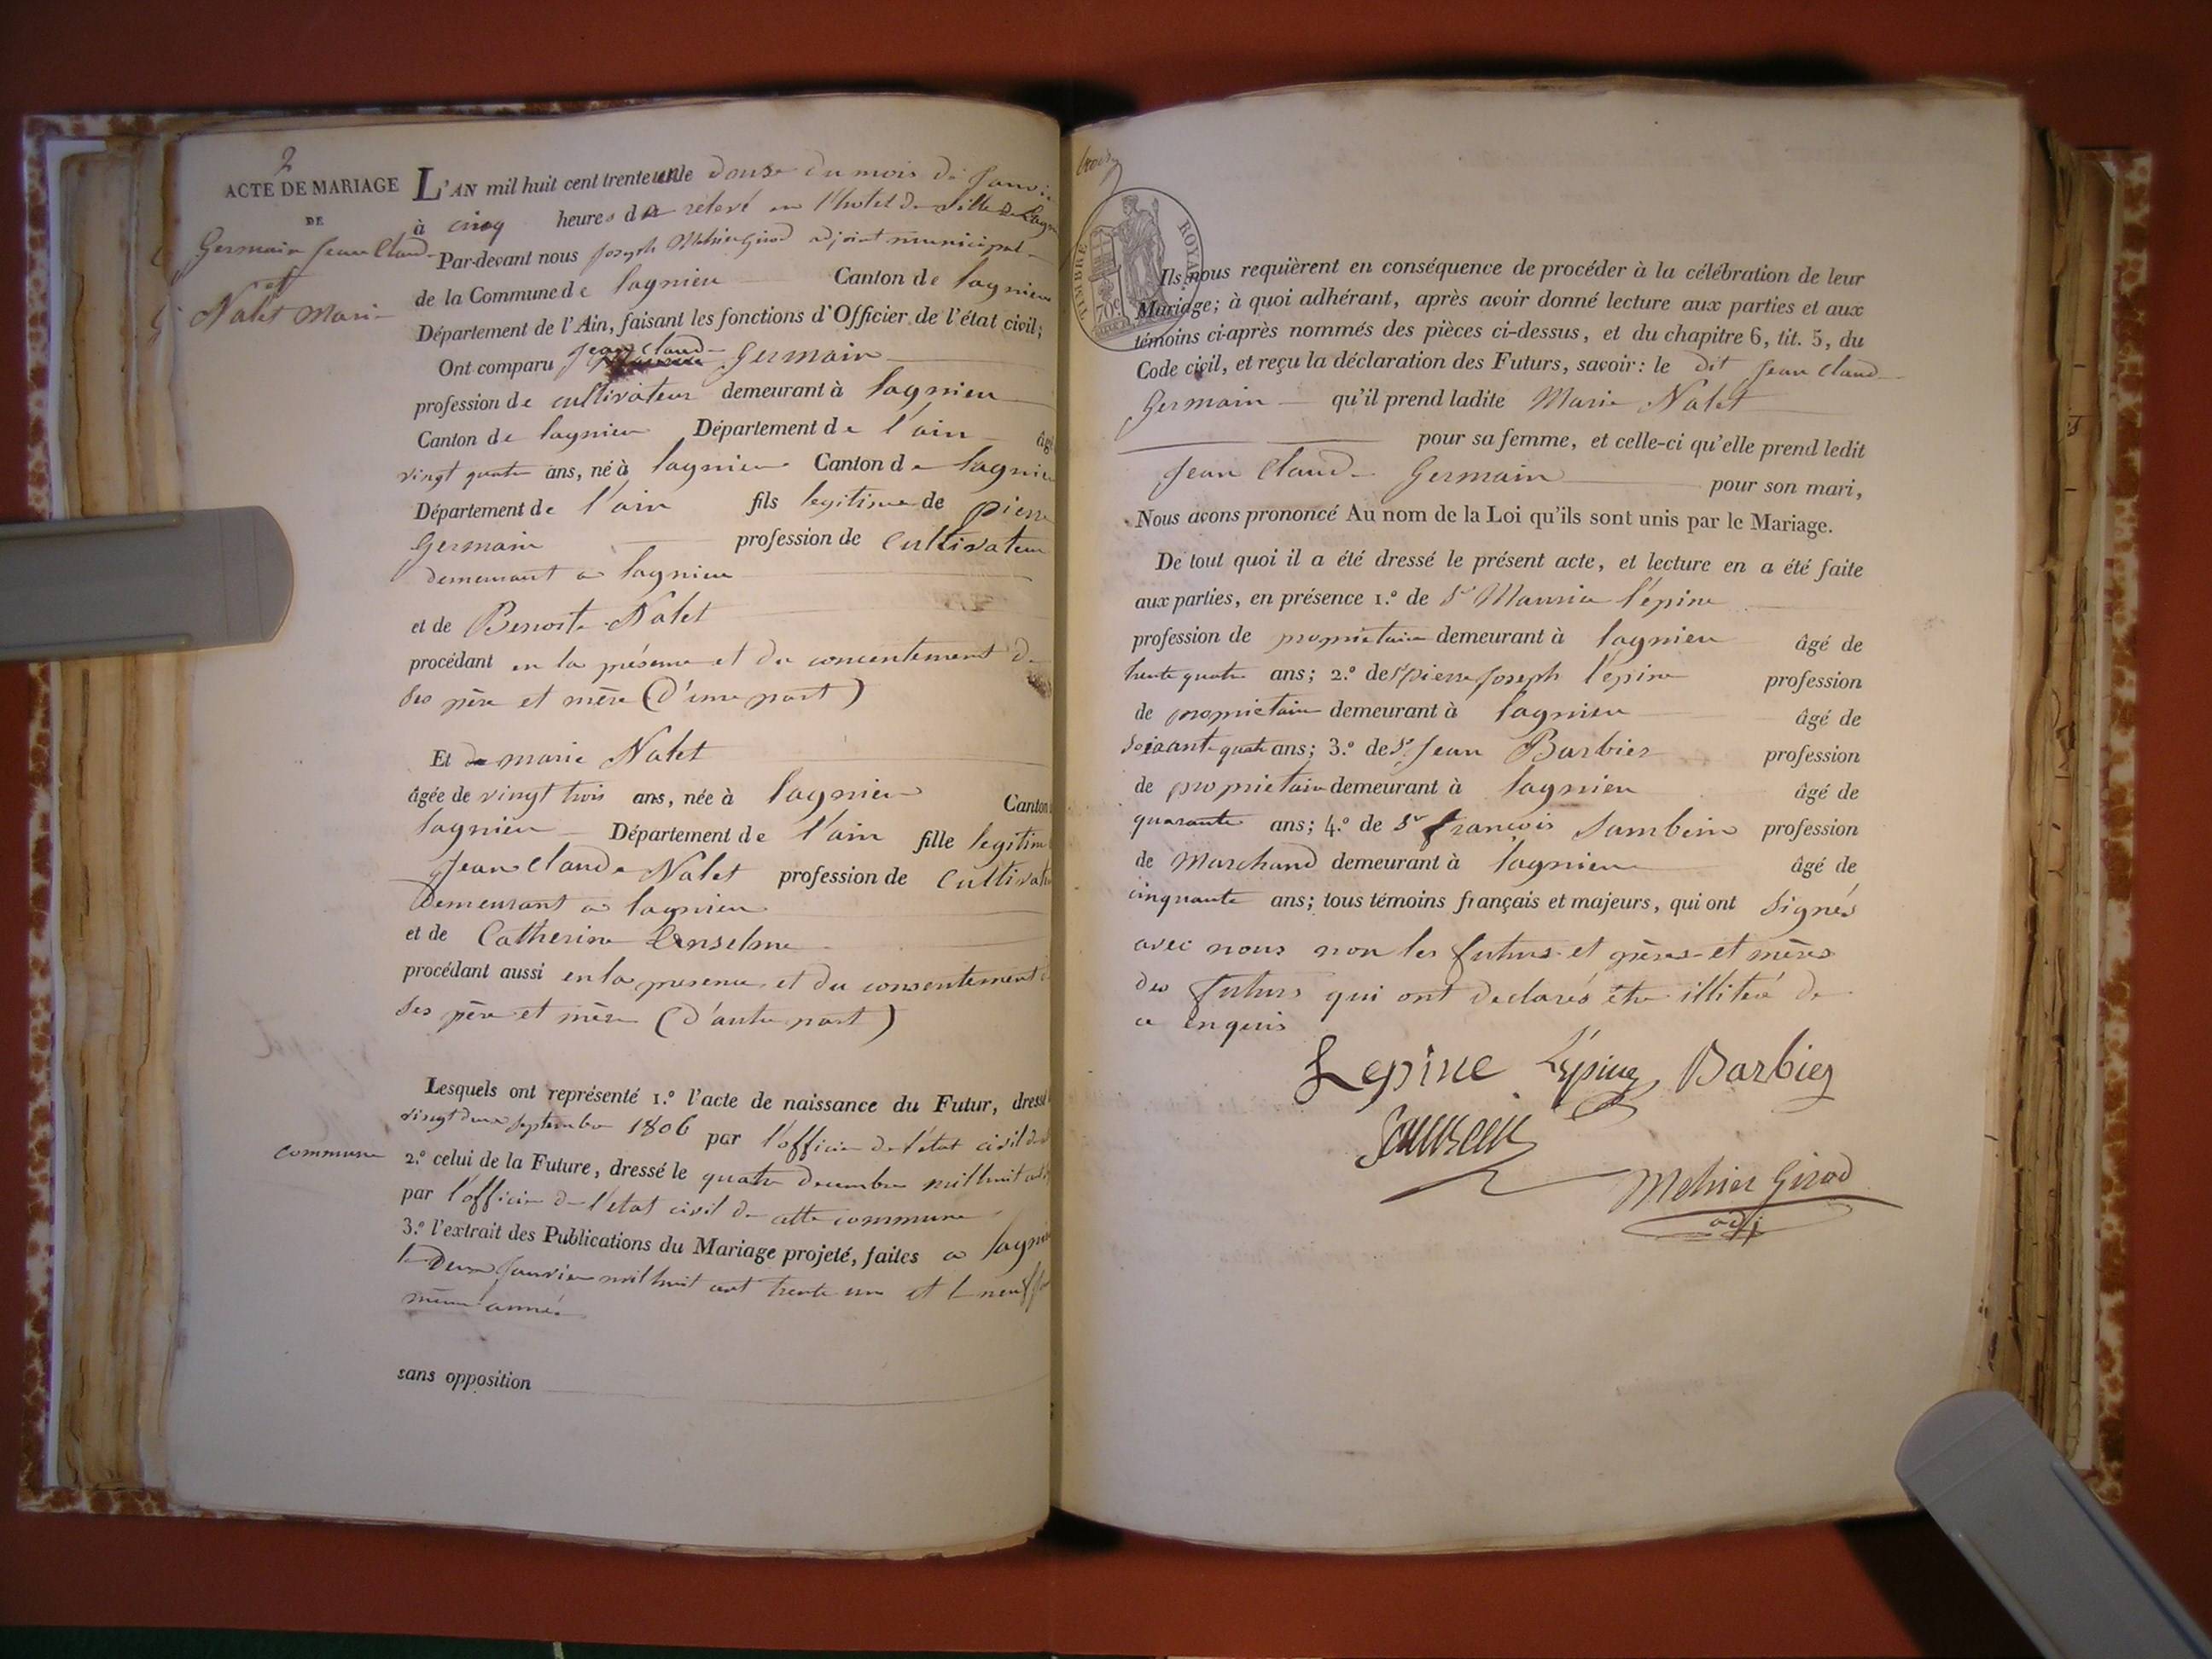 2
ACTE DE MARIAGE
DE
Germain Jean Claude
et
Nalet Marie
L'AN mil huit cent trente un le douse du mois de Janvi
à cinq heures de relevé en l'hotel de ville de Lagn
Par-devant nous Joseph Mehier Girod adjoint municipal
de la Commune de Lagnieu Canton de Lagnieu
Département de l'Ain, faisant les fonctions d'Officier de l'état civil;
Ont comparu Jean Claude Germain
profession de cultivateur demeurant à Lagnieu
Canton de Lagnieu Département de l'ain âgé
vingt quatre ans, né à Lagnieu Canton de Lagnieu
Département de l'ain fils legitime de pierre
Germain profession de Cultivateur
demeurant a Lagnieu
et de Benoite Nalet
procédant en la présence et du concentement de
ses père et mère (d'une part)
Et de marie Nalet
âgée de vingt trois ans, née à Lagnieu Canton
Lagnieu Département de l'ain fille legitim
Jean Claude Nalet profession de Cultivat
Demeurant a Lagnieu
et de Catherine Anselme
procédant aussi en la presence et du consentement
ses père et mère (d'autre part)
Lesquels ont représenté 1.° l'acte de naissance du Futur, dressé
vingt deux septembre 1806 par l'officier de l'état civil de
commune
2.° celui de la Future, dressé le quatre decembre mil huit cent
par l'officier de l'etat civil de cette commune
3.° l'extrait des Publications du Mariage projeté, faites a Lagnieu
le Deux Janvier mil huit cent trente un et le neuf
même année
sans opposition
TIMBRE ROYAL
70c
Ils nous requièrent en conséquence de procéder à la célébration de leur
Mariage; à quoi adhérant, après avoir donné lecture aux parties et aux
témoins ci-après nommés des pièces ci-dessus, et du chapitre 6, tit. 5, du
Code civil, et reçu la déclaration des Futurs, savoir: le dit Jean Claude
Germain qu'il prend ladite Marie Nalet
pour sa femme, et celle-ci qu'elle prend ledit
Jean Claude Germain pour son mari,
Nous avons prononcé Au nom de la Loi qu'ils sont unis par le Mariage.
De tout quoi il a été dressé le présent acte, et lecture en a été faite
aux parties, en présence 1.° de Sr Maurice l'épine
profession de proprietaire demeurant à Lagnieu âgé de
trente quatre ans; 2.° de Sr pierre Joseph l'épine profession
de proprietaire demeurant à Lagnieu âgé de
soixante quatre ans; 3.° de Sr Jean Barbier profession
de proprietaire demeurant à Lagnieu âgé de
quarante ans; 4.° de Sr françois Sambein profession
de Marchand demeurant à Lagnieu âgé de
cinquante ans; tous témoins français et majeurs, qui ont signés
avec nous non les futurs et pères et mères
des futurs qui ont declarés être illiteré de
ce enquis
Lepine L'épine Barbier
Sambein
Mehier Girod
adj